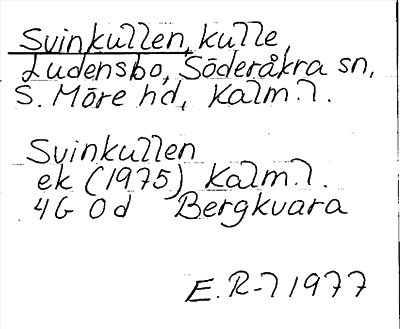 Svinkullen, kulle,
Ludensbo, Söderåkra sn,
S. Möre hd, Kalm. l.
Svinkullen
ek (1975) Kalm. l.
4G 0d Bergkvara
E. R-l 1977